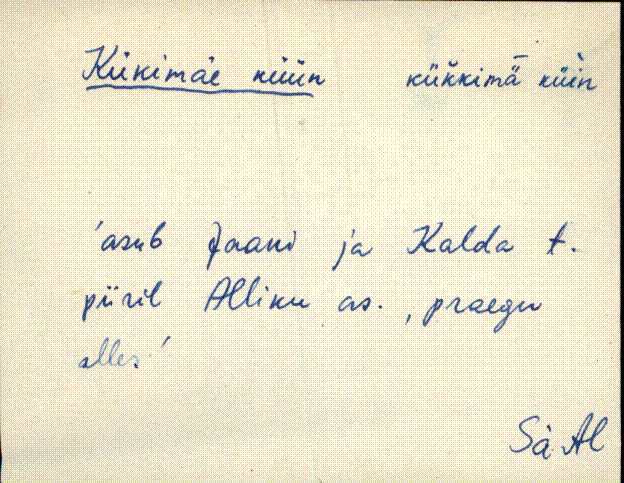 Kükimäe küün kük̆kimǟ küìn
'asub Jaani ja Kalda t.
piiril Alliku as., praegu
alles'
Sä Al